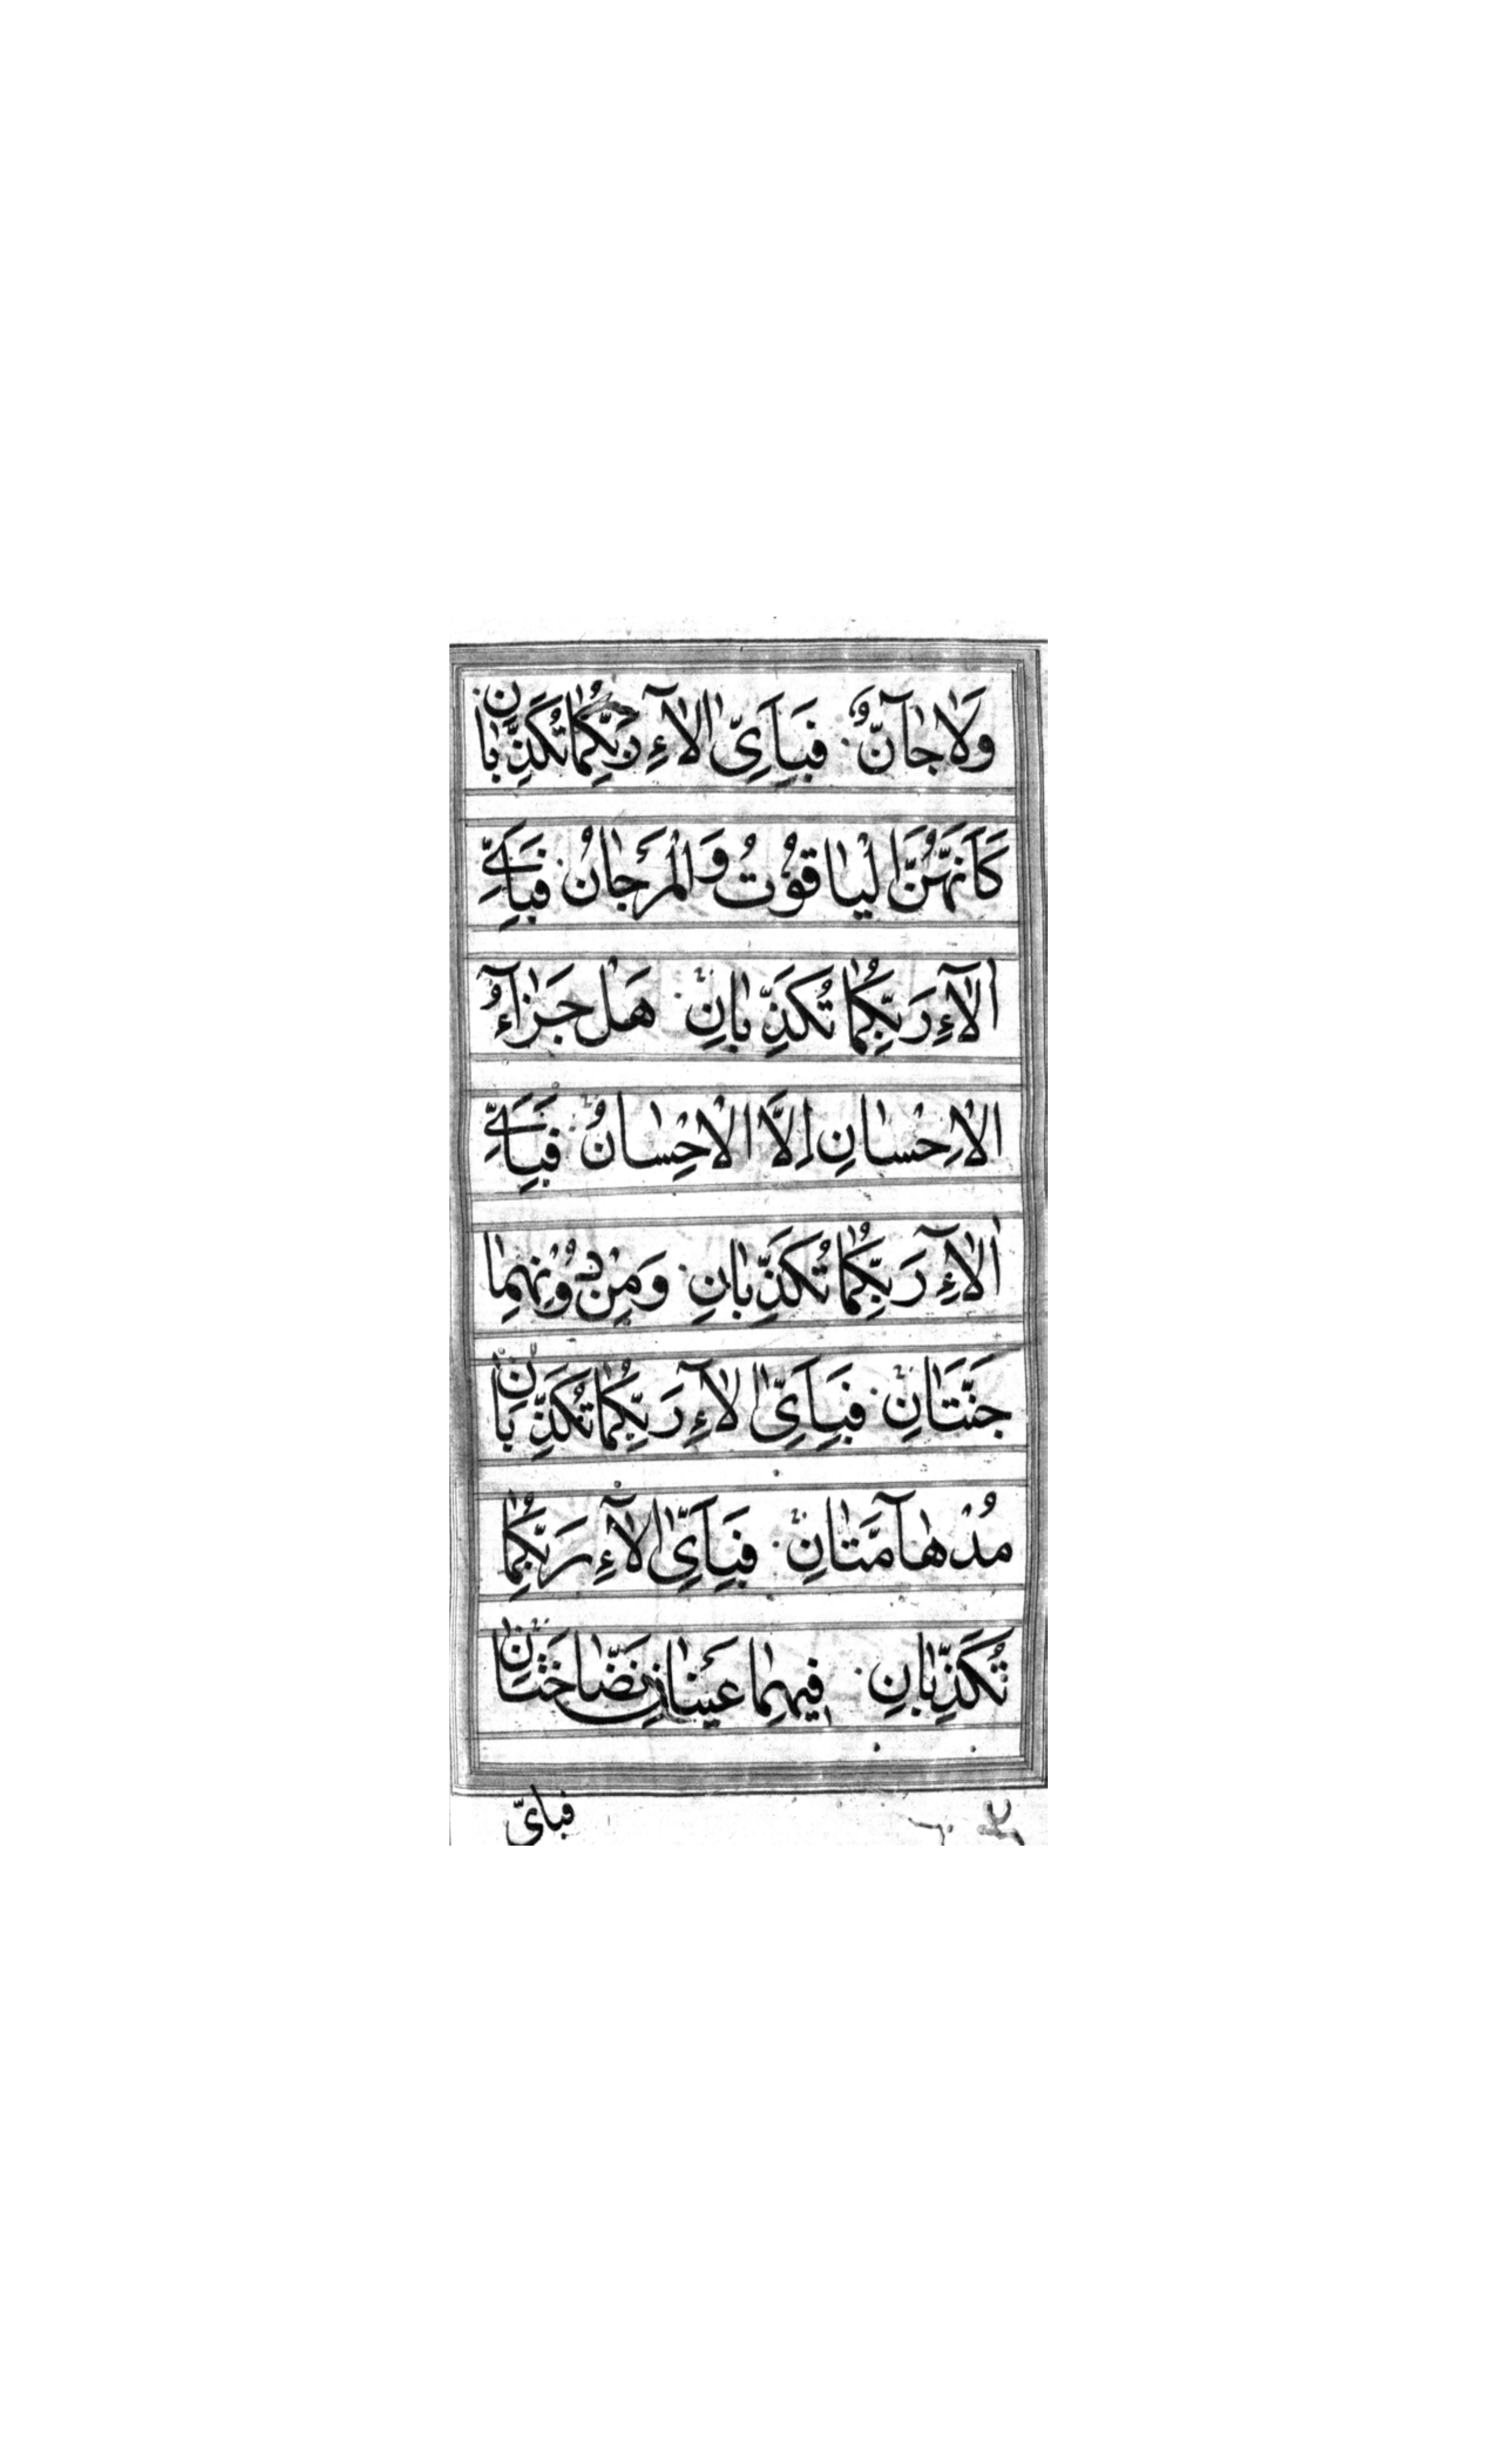 وَلَا جَآنٌّ فَبِاَىِّ اٰلَآءِ رَبِّكُمَا تُكَذِّبَانِ
كَاَنَّهُنَّ الْيَاقُوْتُ وَالْمَرْجَانُ فَبِاَىِّ
اٰلَآءِ رَبِّكُمَا تُكَذِّبَانِ هَلْ جَزَآءُ
الْاِحْسَانِ اِلَّا الْاِحْسَانُ فَبِاَىِّ
اٰلَآءِ رَبِّكُمَا تُكَذِّبَانِ وَمِنْ دُوْنِهِمَا
جَنَّتَانِ فَبِاَىِّ اٰلَآءِ رَبِّكُمَا تُكَذِّبَانِ
مُدْهَآمَّتَانِ فَبِاَىِّ اٰلَآءِ رَبِّكُمَا
تُكَذِّبَانِ فِيهِمَا عَيْنَانِ نَضَّاخَتَانِ
فباىّ